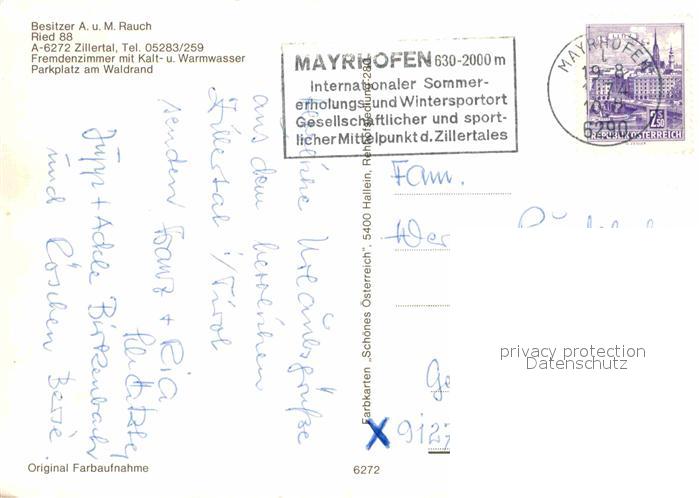 Besitzer A. u. M. Rauch
Ried 88
A-6272 Zillertal, Tel. 05283/259
Fremdenzimmer mit Kalt- u. Warmwasser
Parkplatz am Waldrand
MAYRHOFEN 630-2000 m
Internationaler Sommer-
erholungs- und Wintersportort
Gesellschaftlicher und sport-
licher Mittelpunkt d. Zillertales
MAYRHOFEN
6290
REPUBLIK ÖSTERREICH
Herzliche Urlaubsgrüße
aus dem herrlichen
Zillertal i/Tirol
senden Franz + Ria
Jupp + Adele Birkenbach
und Röschen
Farbkarten „Schönes Österreich", 5400 Hallein, Rehhofsiedlung 280
Fam.
Wer
Ge
X 9127
privacy protection
Datenschutz
Original Farbaufnahme
6272